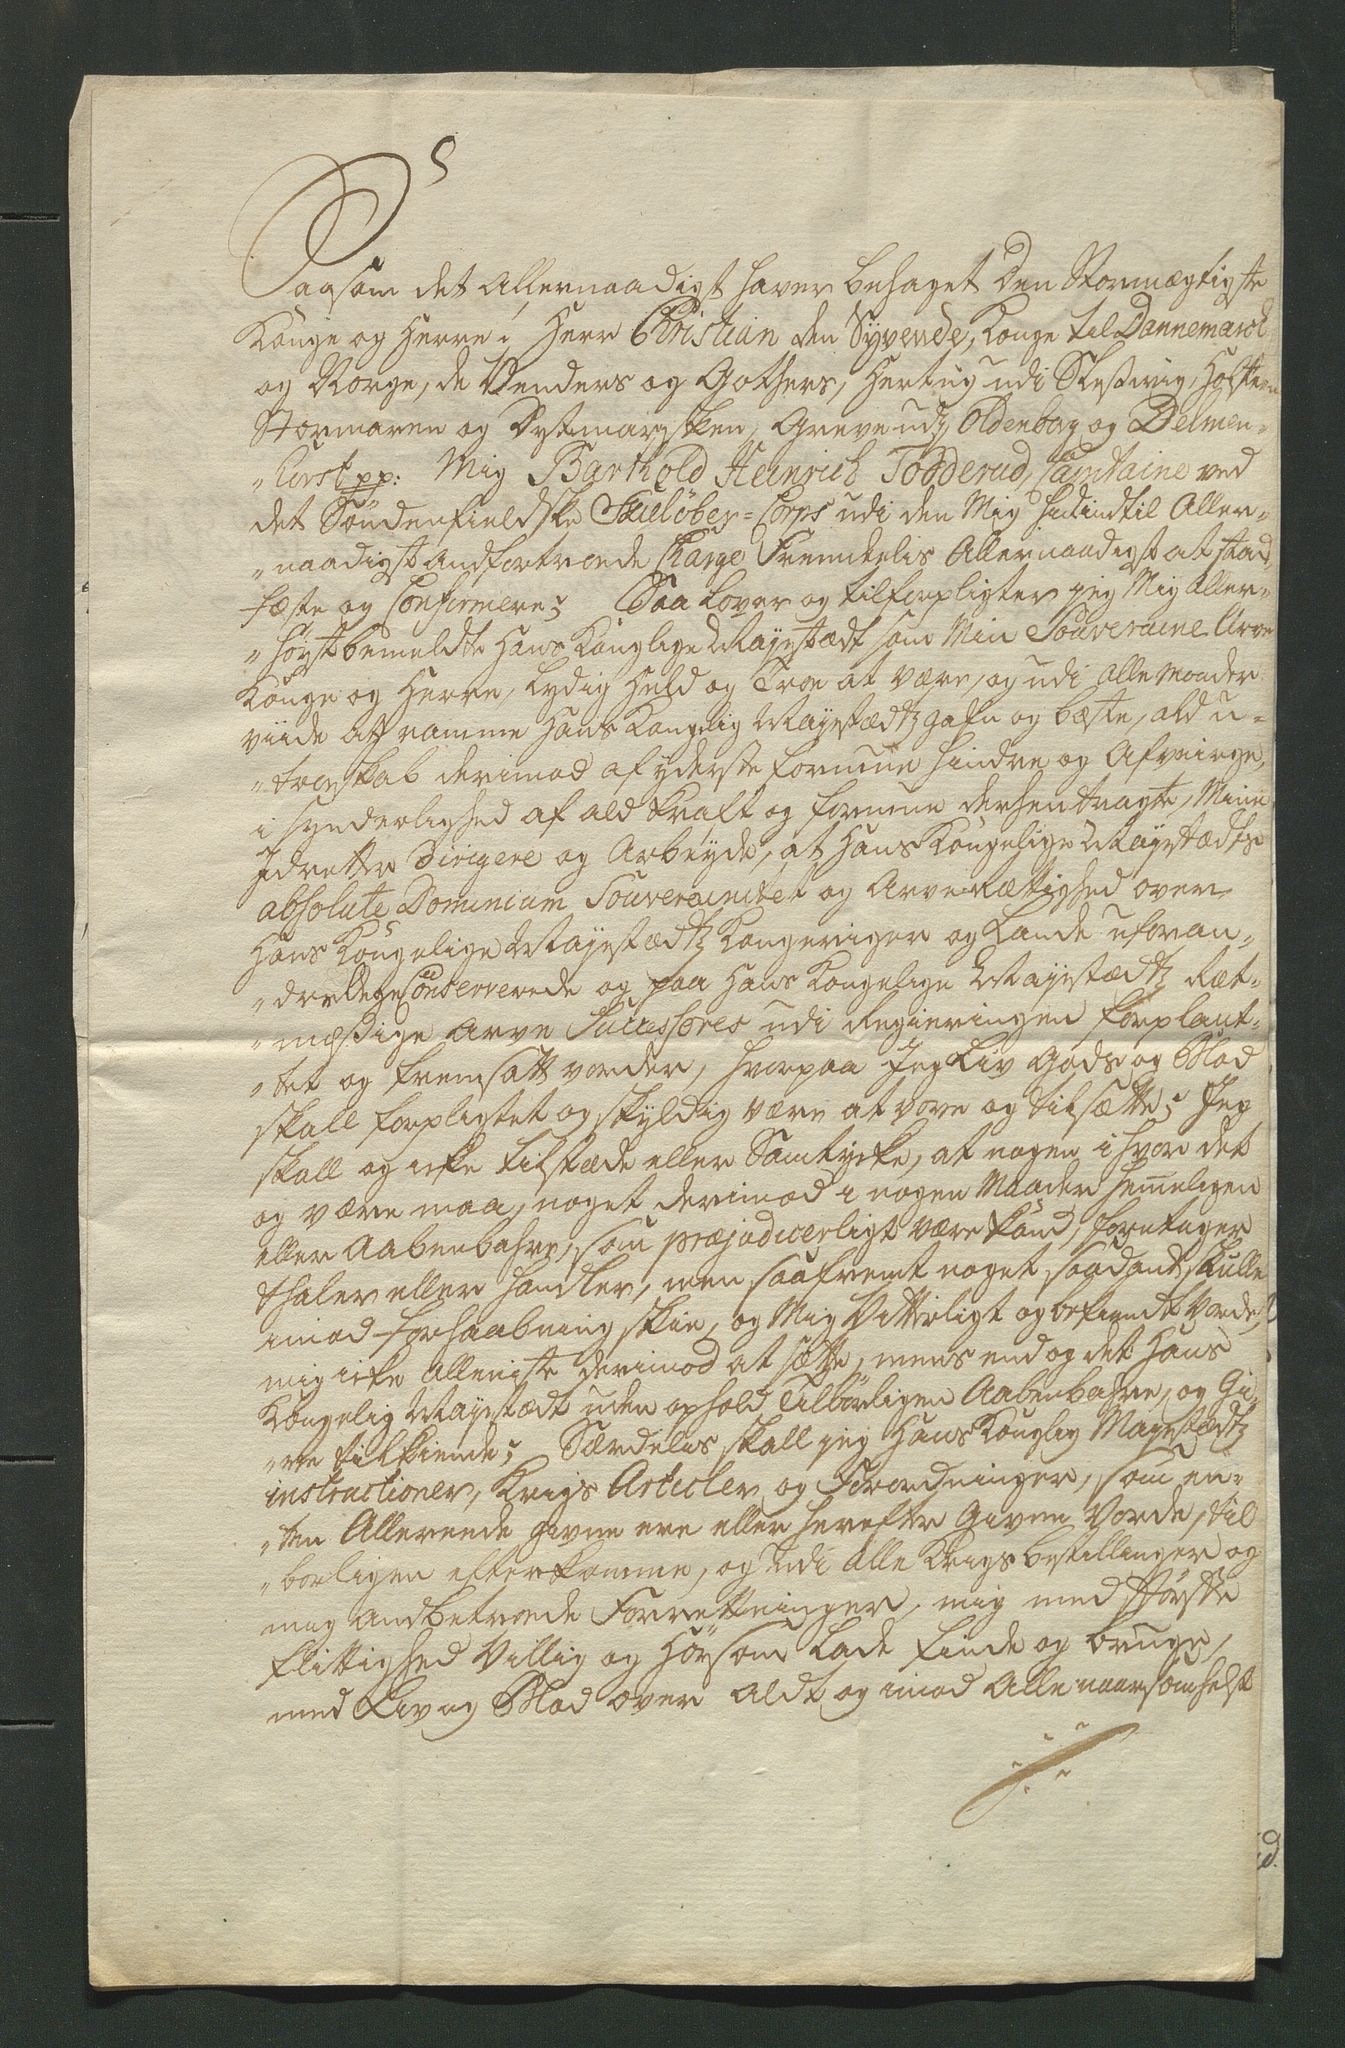 Saasom det Allernaadigst haver behaget Den Stormægtigste
Konge og Herre, Herr Christian den Syvende, Konge til Dannemarck
og Norge, de Venders og Gothers, Hertug udi Slesvig, Holsten
Stormaren og Dytmarsken, Greve udi Oldenborg og Delmen-
"horst pp: Mig Barthold Heinrich Todderud, Capitaine ved
det Söndenfieldske Skielöber-Corps udi den Mig hidindtil Aller-
"naadigst Andfortroede Charge Fremdelis Allernaadigst at stad-
fæste og Confirmere; Saa Lover og tilforpligter jeg Mig Aller-
"høystbemeldte Hans Konglige Mayestædt som Min Souveraine Arve
Konge og Herre, Lydig Huld og Troe at være, og udi alle Maader
viide at ramme Hans Kongelig Mayestædtz gafn og bæste, ald u-
"troeskab derimod af yderste formue hindre og Afværge,
i synderlighed af ald Kraft og formue derhen tragte, Mine
Idretter dirigere og Arbeyde, at Hans Kongelige Mayestædts
absolute Dominium Souverainitet og Arverættighed over
Hans Kongelige Mayestædtz Kongeriger og Lande uforan-
"derlige Conserverede og paa Hans Kongelige Mayestædtz Ræt-
"mæssige Arve Successores udi Regieringen forplant-
"tet og fremsatt vorder, hvorpaa Jeg Liv Gods og Blod
skall forpligtet og skyldig være at vove og tilsætte; Jeg
skall og icke tilstæde eller Samtycke, at nogen i hvor det
og være maa, noget derimod i nogen Maader hemeligen
eller Aabenbahre, som præjudicerligt være kand, foretager
thaler eller handler, men saafremt noget saadant skulle
imod forhaabning skie, og Mig Vitterligt og bekiendt Vorde,
mig icke alleniste derimod at sætte, mens end og det Hans
Kongelig Mayestædt uden ophold Tilbörligen Aabenbahre, og Gi-
"ve tilkiende; Særdelis skall jeg Hans Konglig Mayestædtz
instructioner, Krigs Articler og Forordninger, som en-
"ten Allereede givne ere eller herefter Given Vorde, til-
"börligen efterkomme, og udi alle Krigsbestillinger og
mig andbetroede Forrettninger, mig med störste
flittighed Villig og Hörsom Lade finde og bruge,
med Liv og Blod over Aldt og imod Alle naarsomhelst